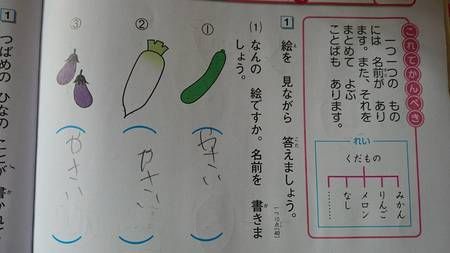 これでかんぺき
一つ一つの もの
には 名前が あり
ます。また、それを
まとめて よぶ
ことばも あります。
れい
くだもの
みかん
りんご
メロン
なし
………
1 絵を 見ながら 答えましょう。
(1) なんの 絵ですか。名前を 書きま
しょう。
①
やさい
②
やさい
③
やさい
1
つばめの ひなの ことが 書かれ